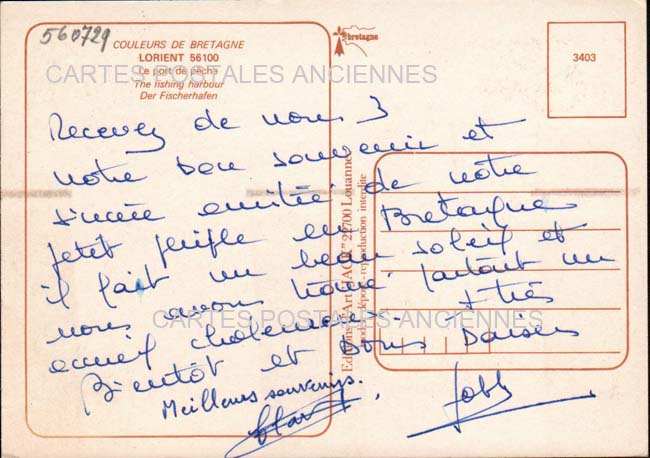 560729
COULEURS DE BRETAGNE
LORIENT 56100
Le port de pêche
The fishing harbour
Der Fischerhafen
bretagne
3403
CARTES POSTALES ANCIENNES
Recevez de nous 3
notre bon souvenir et
sincère amitié de notre
petit périple en Bretagne
il fait un beau soleil et
nous avons trouvé partout un
accueil chaleureux. A très
Bientôt et Bons Baisers
Meilleurs souvenirs.
CARTES POSTALES ANCIENNES
Editions d'Art "JACK" 22700 Louannec
modèle déposé - reproduction interdite